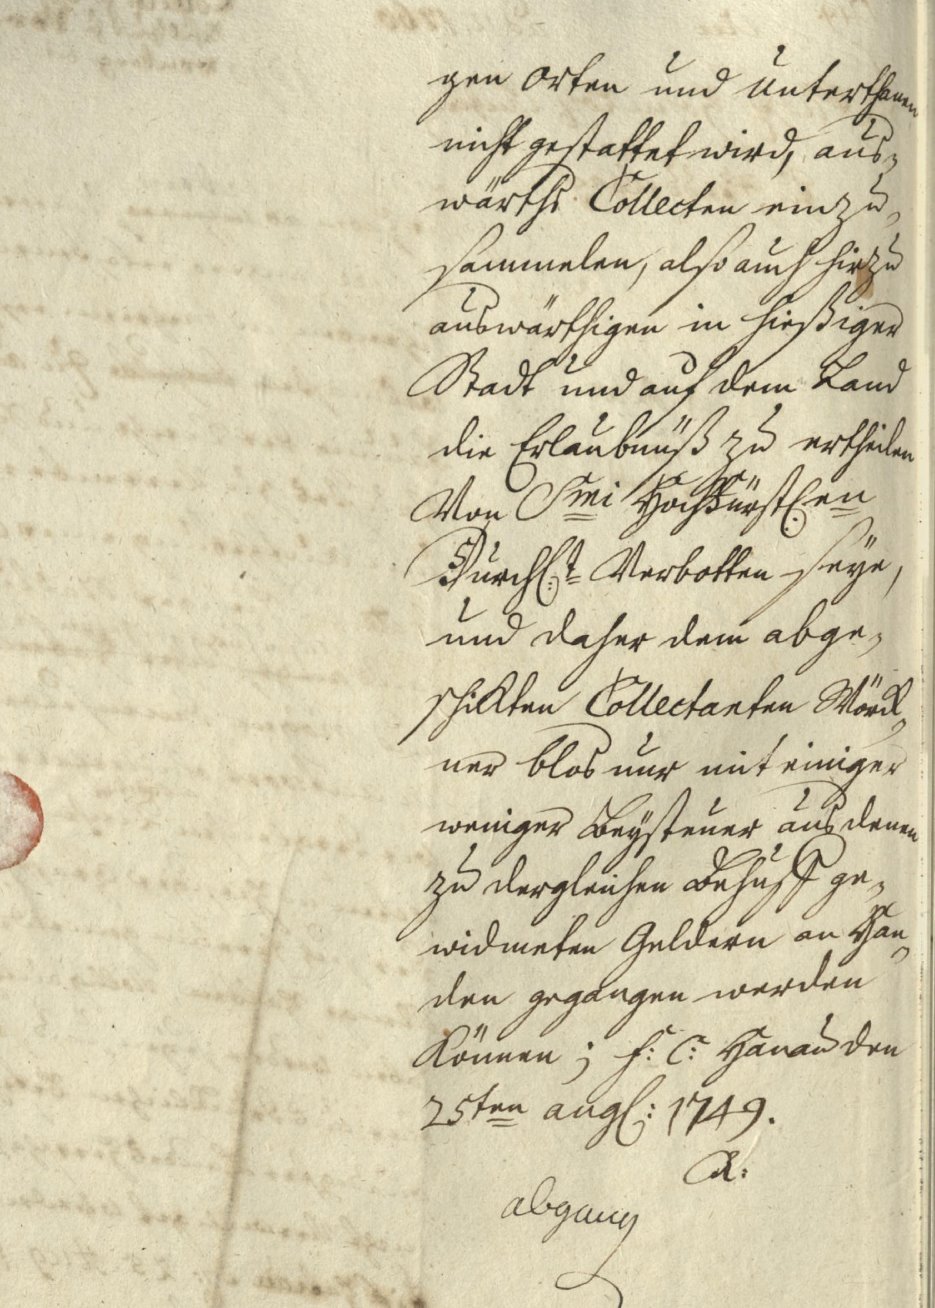 gen Orten und Unterthanen
nicht gestattet wird, aus-
wärths Collecten einzu-
sammelen, also auch hinzu
auswärthigen in hießiger
Stadt und auf dem Land
die Erlaubnüß zu ertheilen
Von Smi Hochfürstl:en
Durchl:t Verbotten seye,
und daher dem abge-
schikten Collectanten Wörd-
ner blos nur mit einiger
weniger Beysteuer aus denen
zu dergleichen Behuff ge-
widmeten Geldern an Han-
den gegangen werden
können; f: C: Hanau den
25ten augl: 1749.
R:
abgang